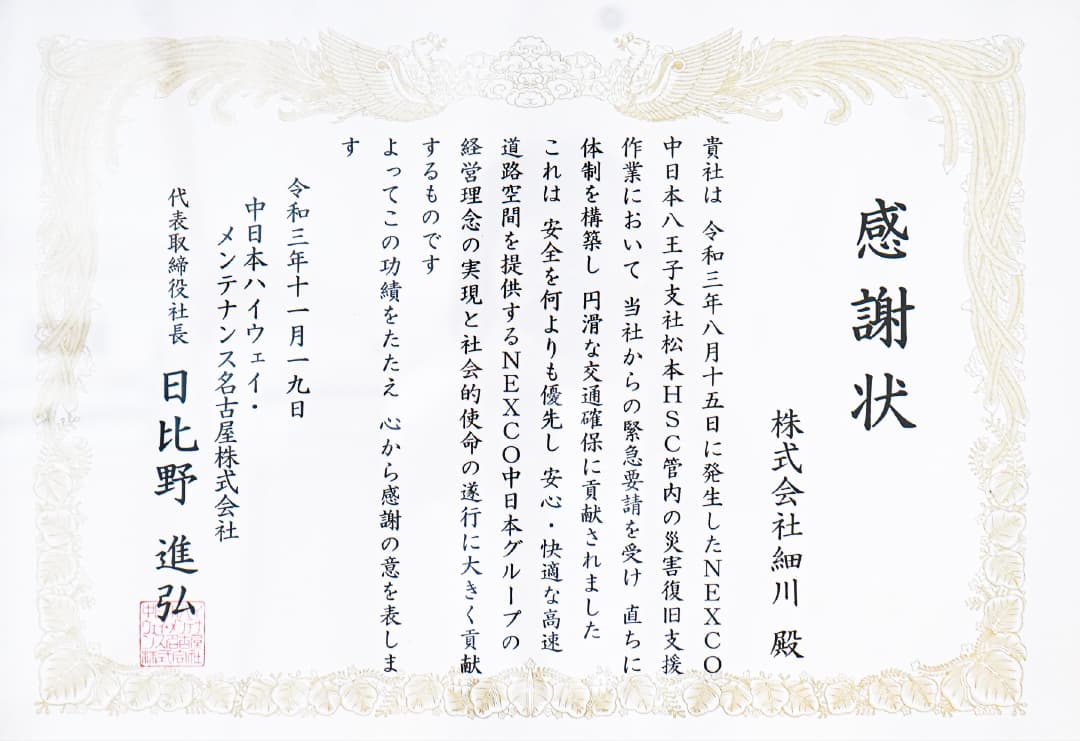 感謝状
株式会社細川 殿
貴社は 令和三年八月十五日に発生したNEXCO
中日本八王子支社松本HSC管内の災害復旧支援
作業において 当社からの緊急要請を受け 直ちに
体制を構築し 円滑な交通確保に貢献されました
これは 安全を何よりも優先し 安心・快適な高速
道路空間を提供するNEXCO中日本グループの
経営理念の実現と社会的使命の遂行に大きく貢献
するものです
よってこの功績をたたえ 心から感謝の意を表しま
す
令和三年十一月一九日
中日本ハイウェイ・
メンテナンス名古屋株式会社
代表取締役社長 日比野 進弘